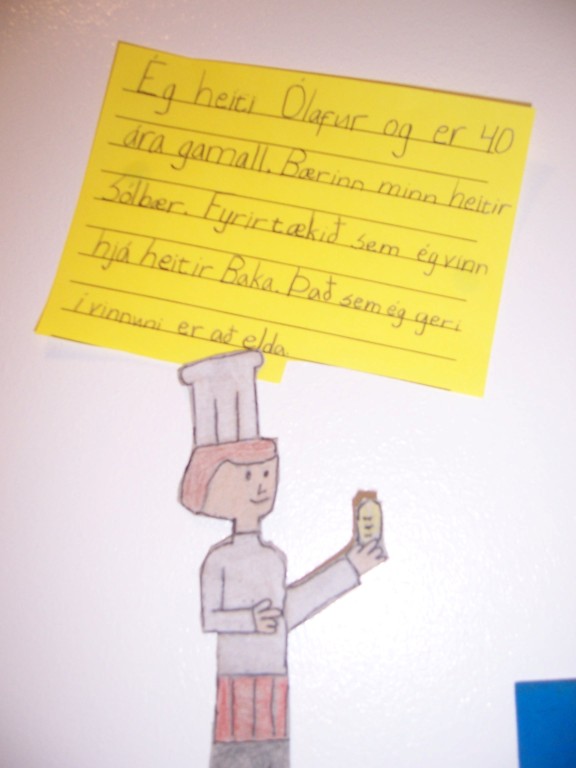 Ég heiti Ólafur og er 40
ára gamall. Bærinn minn heitir
Sólbær. Fyrirtækið sem ég vinn
hjá heitir Baka. Það sem ég geri
í vinnuni er að elda.